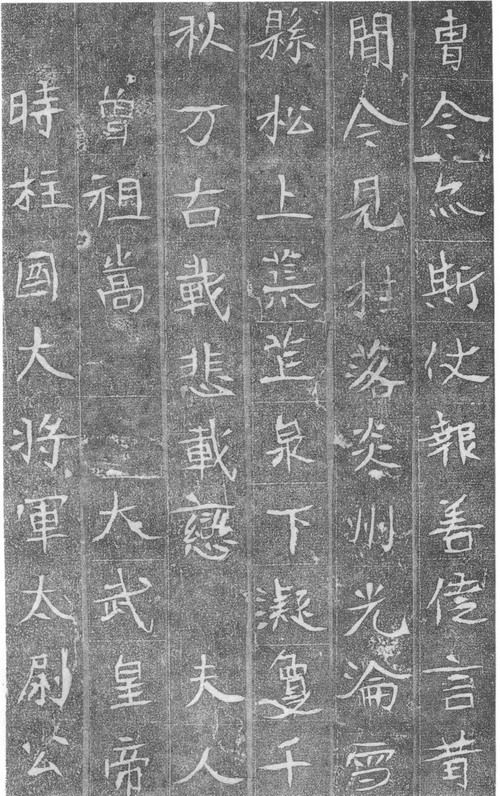 曹令斯仗報善言昔
聞今見桂落炎州光淪雪
縣松上荒芒泉下凝敻千
秋万古載悲載戀　夫人
曾祖嵩　大武皇帝
時柱國大将軍太尉公